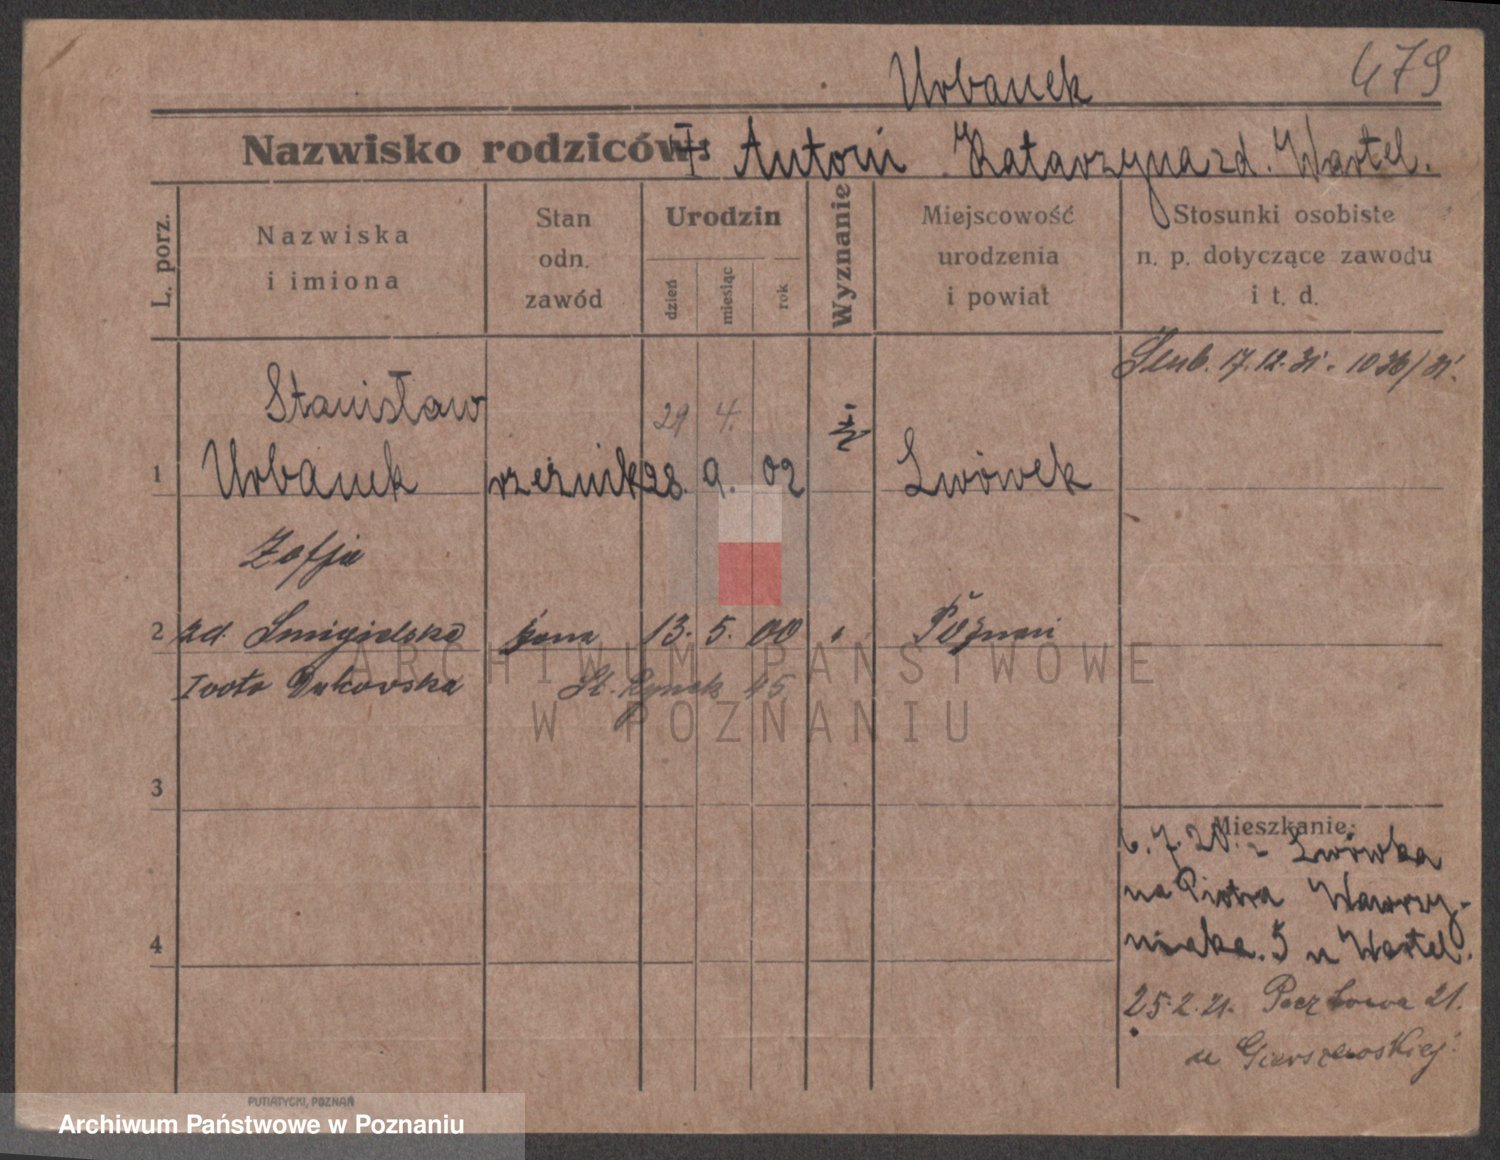 Urbanek
479
Nazwisko rodziców: Antoni Katarzyna zd. Wartel.
L. porz.
Nazwiska
i imiona
Stan
odn.
zawód
Urodzin
dzień
miesiąc
rok
Wyznanie
Miejscowość
urodzenia
i powiat
Stosunki osobiste
n. p. dotyczące zawodu
i t. d.
Ślub. 17.12.31. 1036/31.
Stanisław
29 4.
1 Urbanek rzeźnik 28. 9. 02 Lwówek
Zofja
2 zd. Smigielska żona 13. 5. 00 Poznań
St. Rynek 45
3
Mieszkanie:
6.7.20. z Lwówka
na Piotra Wawrzy-
niaka. 5 u Wartel.
4
25.2.21. Pocztowa 21.
u
PUTIATYCKI, POZNAŃ
ARCHIWUM PAŃSTWOWE
W POZNANIU
Archiwum Państwowe w Poznaniu